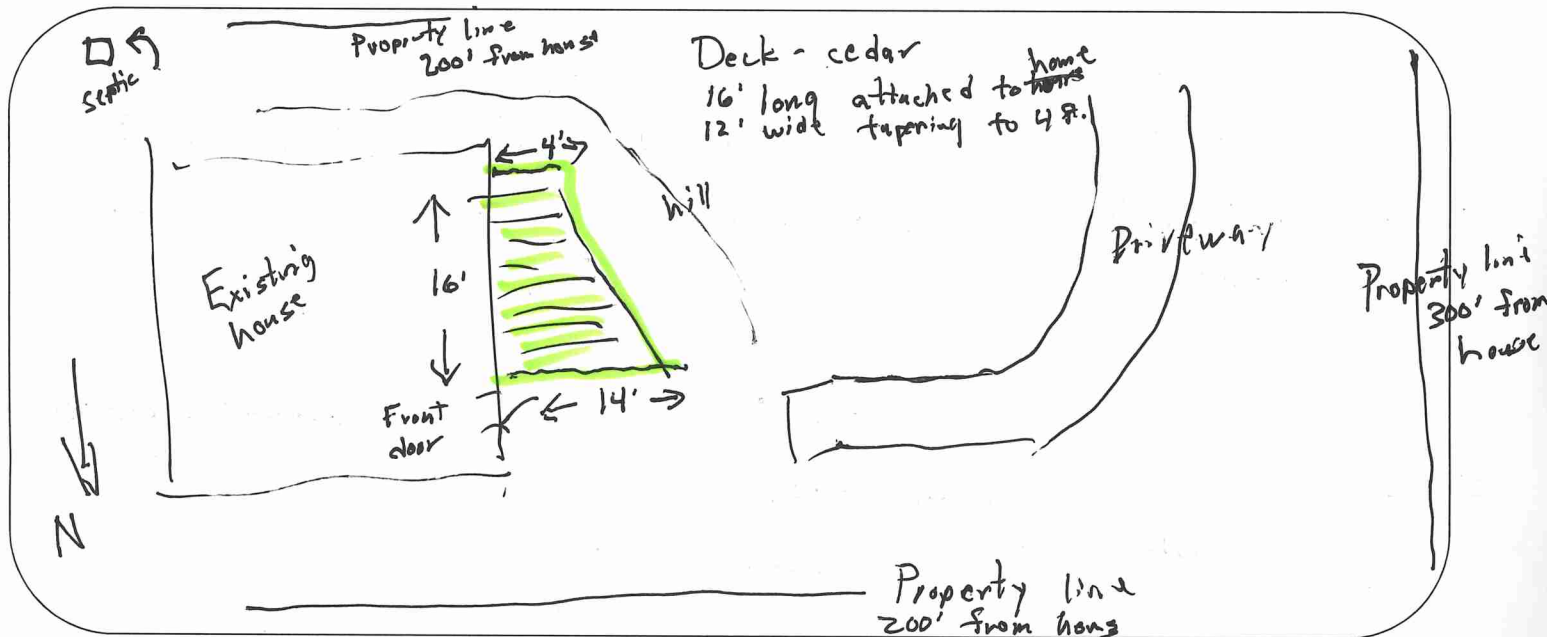 septic
Property line
200' from house
Deck - cedar
16' long attached to home
12' wide tapering to 4 ft.
4'
hill
16'
Existing
house
Driveway
Property line
300' from
house
Front
door
14'
N
Property line
200' from hous